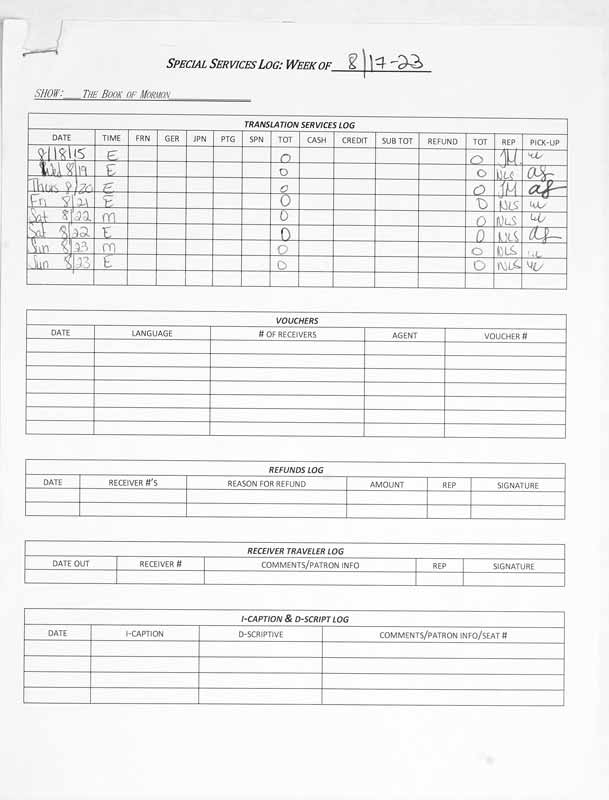 SPECIAL SERVICES LOG: WEEK OF 8/17-23
SHOW: THE BOOK OF MORMON
TRANSLATION SERVICES LOG
DATE TIME FRN GER JPN PTG SPN TOT CASH CREDIT SUB TOT REFUND TOT REP PICK-UP
8/18/15 E 0 0 JM
Wed 8/19 E 0 0 NLS
Thurs 8/20 E 0 0 JM
Fri 8/21 E 0 0 NLS
Sat 8/22 M 0 0 NLS
Sat 8/22 E 0 0 NLS
Sun 8/23 M 0 0 NLS
Sun 8/23 E 0 0 NLS
VOUCHERS
DATE LANGUAGE # OF RECEIVERS AGENT VOUCHER #
REFUNDS LOG
DATE RECEIVER #'S REASON FOR REFUND AMOUNT REP SIGNATURE
RECEIVER TRAVELER LOG
DATE OUT RECEIVER # COMMENTS/PATRON INFO REP SIGNATURE
I-CAPTION & D-SCRIPT LOG
DATE I-CAPTION D-SCRIPTIVE COMMENTS/PATRON INFO/SEAT #